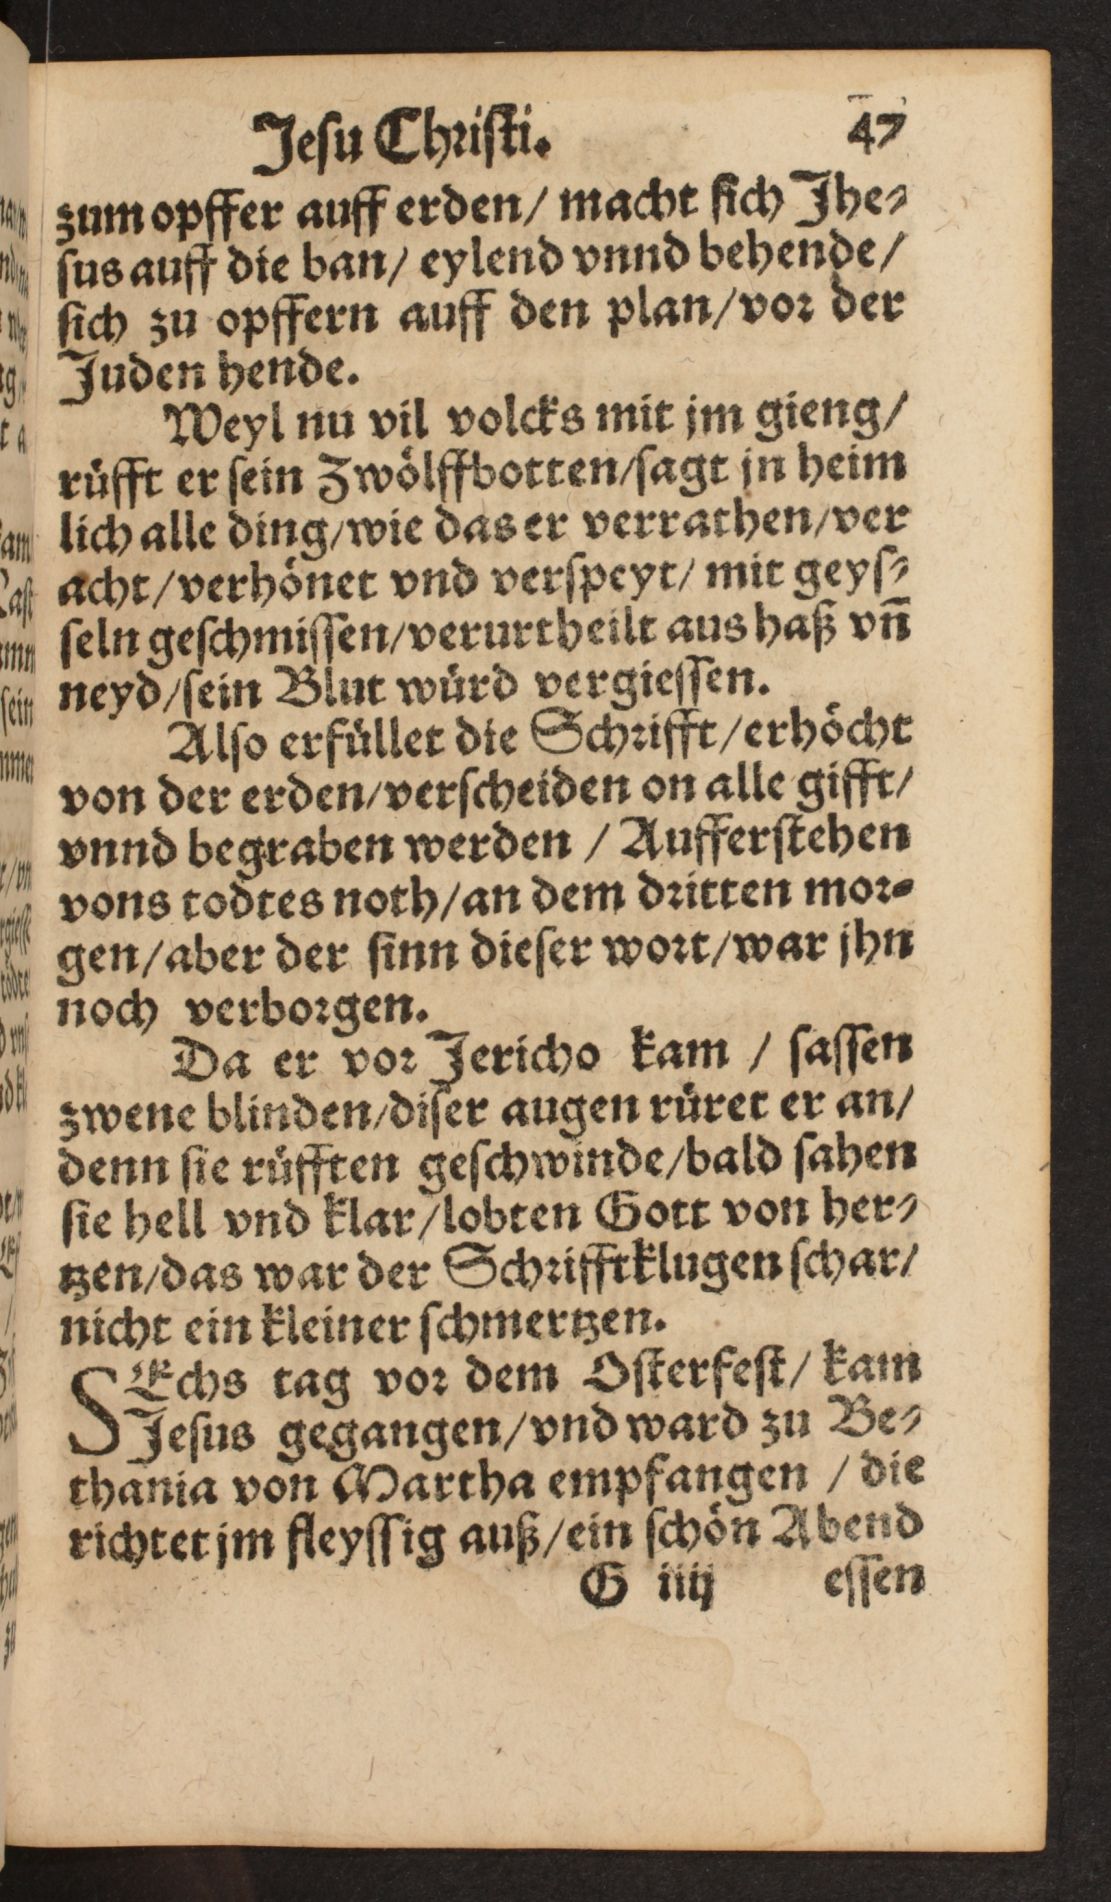 Jesu Christi. 47
zum opffer auff erden/ macht sich Jhe⸗
sus auff die ban/ eylend vnnd behende/
sich zu opffern auff den plan/vor der
Juden hende.
Weyl nu vil volcks mit jm gieng/
rüfft er sein Zwölffbotten/sagt jn heim
lich alle ding/wie das er verrathen/ver
acht/verhönet vnd verspeyt/ mit geys⸗
seln geschmissen/verurtheilt aus haß vn̄
neyd/sein Blut würd vergiessen.
Also erfüllet die Schrifft/erhöcht
von der erden/verscheiden on alle gifft/
vnnd begraben werden / Aufferstehen
vons todtes noth/an dem dritten mor⸗
gen/aber der sinn dieser wort/war jhn
noch verborgen.
Da er vor Jericho kam / sassen
zwene blinden/diser augen rüret er an/
denn sie rüfften geschwinde/bald sahen
sie hell vnd klar/lobten Gott von her⸗
tzen/das war der Schrifftklugen schar/
nicht ein kleiner schmertzen.
SEchs tag vor dem Osterfest/ kam
Jesus gegangen/vnd ward zu Be⸗
thania von Martha empfangen / die
richtet jm fleyssig auß/ein schön Abend
G iiij essen